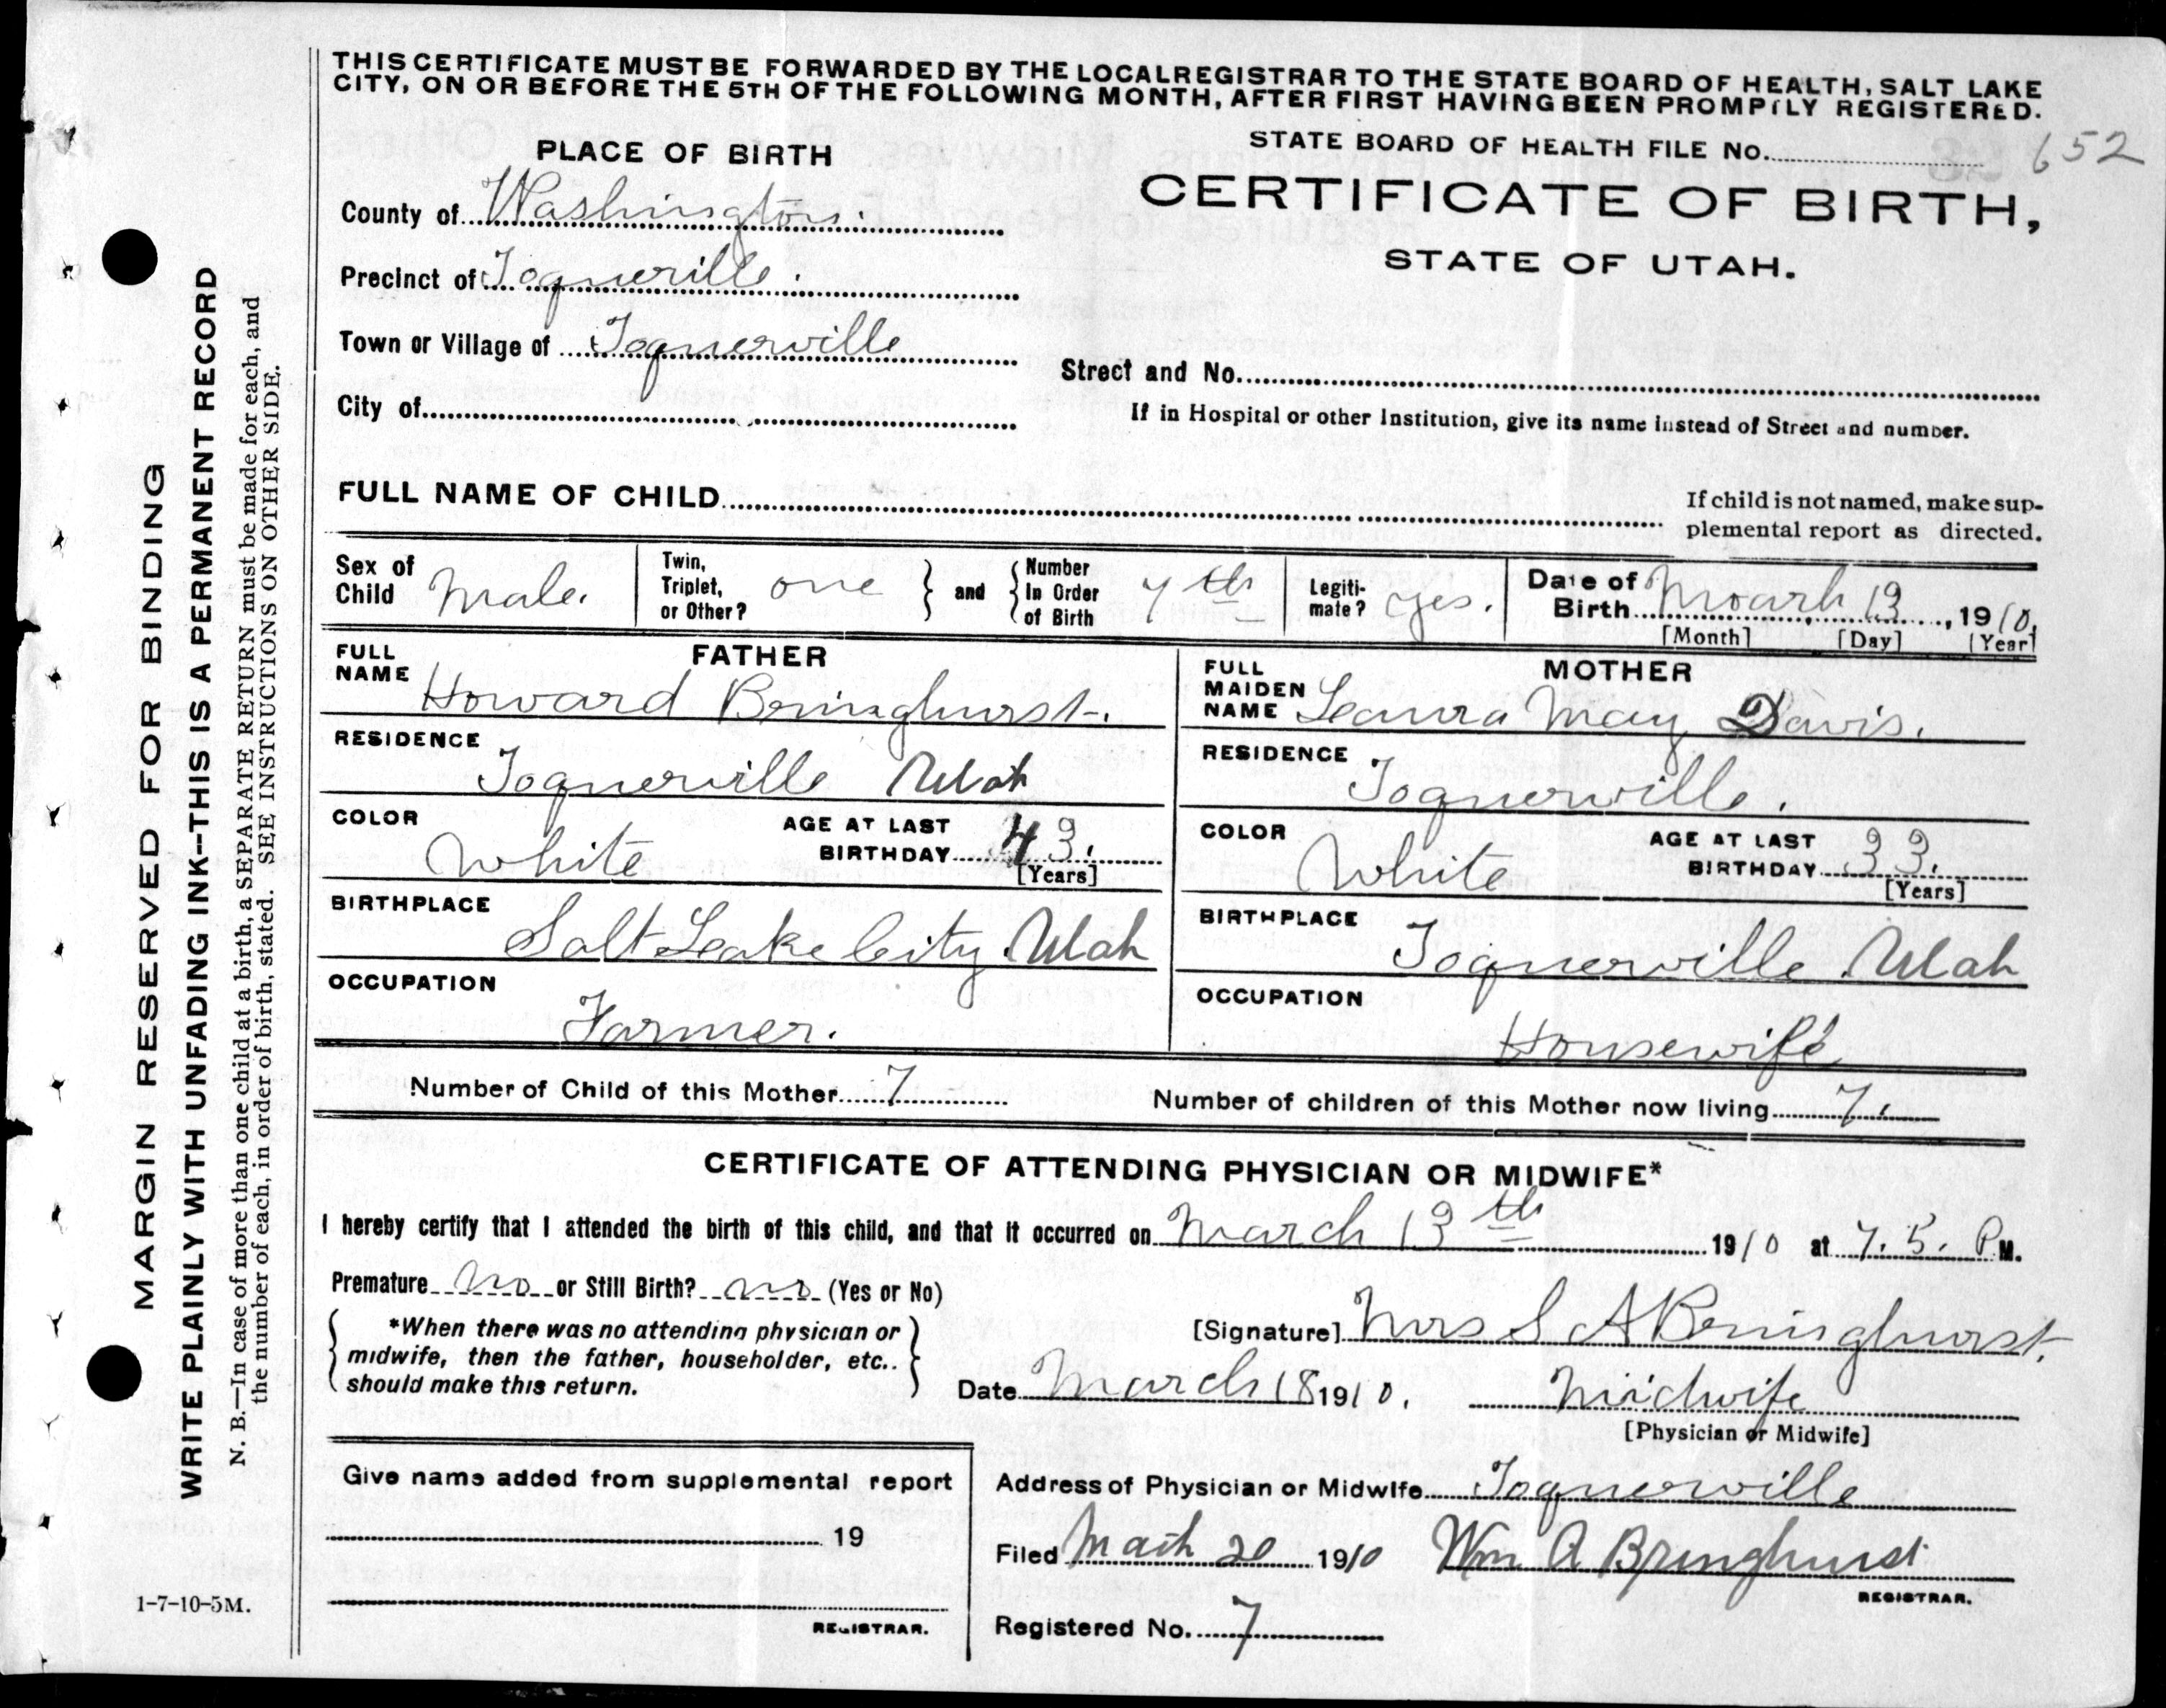 THIS CERTIFICATE MUST BE FORWARDED BY THE LOCAL REGISTRAR TO THE STATE BOARD OF HEALTH, SALT LAKE
CITY, ON OR BEFORE THE 5TH OF THE FOLLOWING MONTH, AFTER FIRST HAVING BEEN PROMPTLY REGISTERED.
STATE BOARD OF HEALTH FILE No. 652
CERTIFICATE OF BIRTH,
STATE OF UTAH.
PLACE OF BIRTH
County of Washington.
Precinct of Toquerville.
Town or Village of Toquerville
City of
Street and No.
If in Hospital or other Institution, give its name instead of Street and number.
FULL NAME OF CHILD
If child is not named, make sup-
plemental report as directed.
Sex of Child Male.
Twin, Triplet, or Other? one
and Number In Order of Birth 7th
Legiti-mate? yes.
Date of Birth March 13, 1910.
[Month] [Day] [Year]
FATHER
FULL NAME Howard Bringhurst.
RESIDENCE Toquerville Utah
COLOR White AGE AT LAST BIRTHDAY 43. [Years]
BIRTHPLACE Salt Leake City Utah
OCCUPATION Farmer.
MOTHER
FULL MAIDEN NAME Leanra May Davis.
RESIDENCE Toquerville.
COLOR White AGE AT LAST BIRTHDAY 33. [Years]
BIRTHPLACE Toquerville Utah
OCCUPATION Housewife
Number of Child of this Mother 7
Number of children of this Mother now living 7.
CERTIFICATE OF ATTENDING PHYSICIAN OR MIDWIFE*
I hereby certify that I attended the birth of this child, and that it occurred on March 13th 1910 at 7.5. P.M.
Premature no or Still Birth? no (Yes or No)
*When there was no attending physician or
midwife, then the father, householder, etc..
should make this return.
[Signature] Mrs S A Bringhurst.
Date March 18 1910. Midwife
[Physician or Midwife]
Give name added from supplemental report
19
REGISTRAR.
Address of Physician or Midwife Toquerville
Filed March 20 1910 Wm A Bringhurst
REGISTRAR.
Registered No. 7
1-7-10-5M.
MARGIN RESERVED FOR BINDING
WRITE PLAINLY WITH UNFADING INK--THIS IS A PERMANENT RECORD
N. B.—In case of more than one child at a birth, a SEPARATE RETURN must be made for each, and
the number of each, in order of birth, stated. SEE INSTRUCTIONS ON OTHER SIDE.